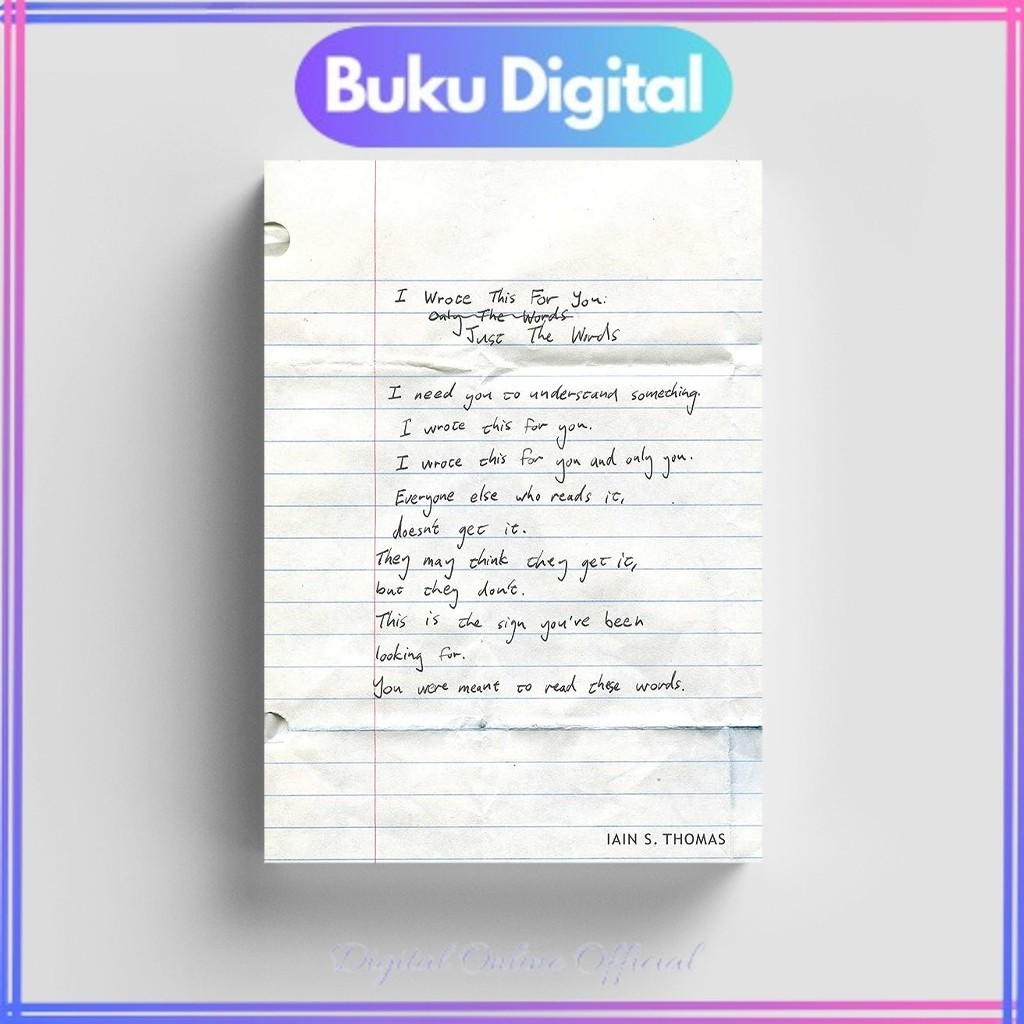 Buku Digital
I Wrote This For You:
Only The Words
Just The Words
I need you to understand something.
I wrote this for you.
I wrote this for you and only you.
Everyone else who reads it,
doesn't get it.
They may think they get it,
but they don't.
This is the sign you've been
looking for.
You were meant to read these words.
IAIN S. THOMAS
Digital Online Official